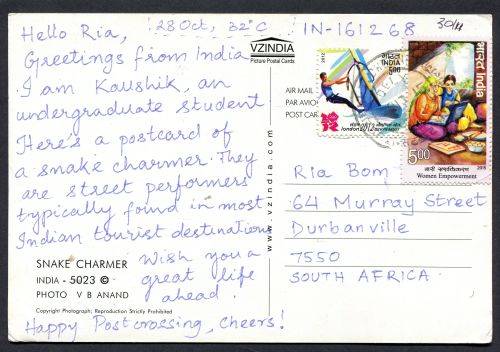 Hello Ria, 28 Oct, 32°C
Greetings from India
I am Kaushik, an
undergraduate student
Here's a postcard of
a snake charmer. They
are street performers
typically found in most
Indian tourist destinations
Wish you a
great life
ahead.
Happy Postcrossing, Cheers!
SNAKE CHARMER
INDIA - 5023 ©
PHOTO V B ANAND
Copyright Photograph; Reproduction Strictly Prohibited
VZINDIA
Picture Postal Cards
www.vzindia.com
IN-161268
30/11
AIR MAIL
PAR AVION
POST CARD
2012
भारत
INDIA
500
london2012
भारत India
5.00
2015
Women Empowerment
Ria Bom
64 Murray Street
Durbanville
7550
SOUTH AFRICA